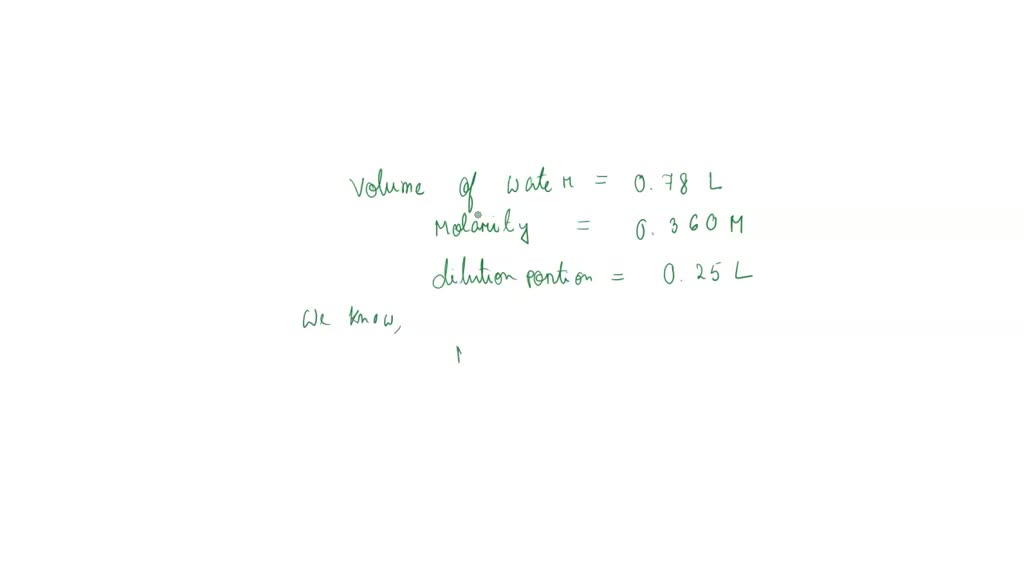 Volume of water = 0.78 L
Molarity = 0.360 M
dilution portion = 0.25 L
We know,